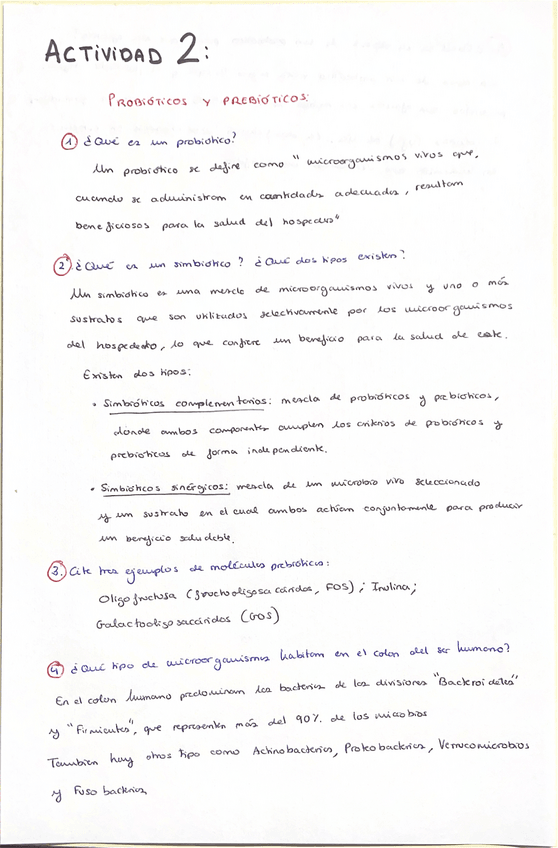 ACTIVIDAD 2:
PROBIÓTICOS Y PREBIÓTICOS:
1 ¿Qué es un probiótico?
Un probiótico se define como "microorganismos vivos que,
cuando se administran en cantidades adecuadas, resultan
beneficiosos para la salud del hospedes"
2 ¿Qué es un simbiótico? ¿Qué dos tipos existen?
Un simbiótico es una mezcla de microorganismos vivos y uno o más
sustratos que son utilitados selectivamente por los microorganismos
del hospedado, lo que confiere un beneficio para la salud de este.
Existen dos tipos:
• Simbióticos complementarios: mezcla de probióticos y prebióticos,
donde ambos componentes cumplen los criterios de probióticos y
prebióticos de forma independiente.
• Simbióticos sinérgicos: mezcla de un microbio vivo seleccionado
y un sustrato en el cual ambos actúan conjuntamente para producir
un beneficio saludable.
3. Cite tres ejemplos de moléculas prebióticas:
Oligofructosa (fructooligosacáridos, FOS); Inulina;
Galactooligosacáridos (GOS)
4 ¿Qué tipo de microorganismos habitan en el colon del ser humano?
En el colon humano predominan las bacterias de las divisiones "Bacteroidetes"
y "Firmicutes", que representan más del 90% de los microbios
Tambien hay otros tipo como Actinobacterias, Proteobacterias, Verrucomicrobios
y Fusobacterias,